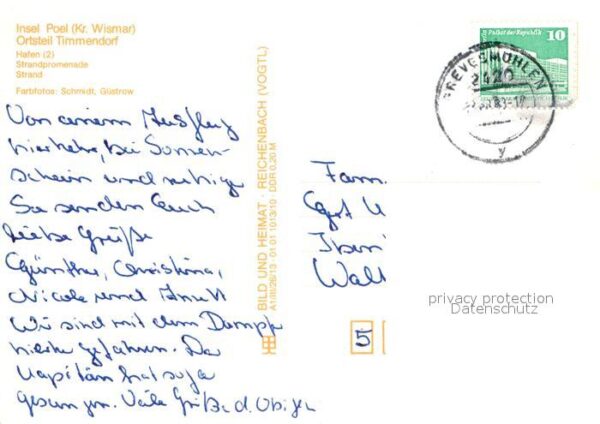 Insel Poel (Kr. Wismar)
Ortsteil Timmendorf
Hafen (2)
Strandpromenade
Strand
Farbfotos: Schmidt, Güstrow
Von einem Ausflug
hierher, bei Sonnen-
schein und ruhige
See senden Euch
liebe Grüße
Günther, Christina,
Nicole und
Wir sind mit dem Dampfe
hierhe gefahren. Der
Kapitän hat soga
gesungen. Viele Grüße d. Obigen
BILD UND HEIMAT · REICHENBACH (VOGTL)
A1/III/26/13 · 01 01 1013/10 · DDR 0,20 M
Palast der Republik
10
GREVESMÜHLEN
2420
y
Fam.
Gert
Wall
5
privacy protection
Datenschutz